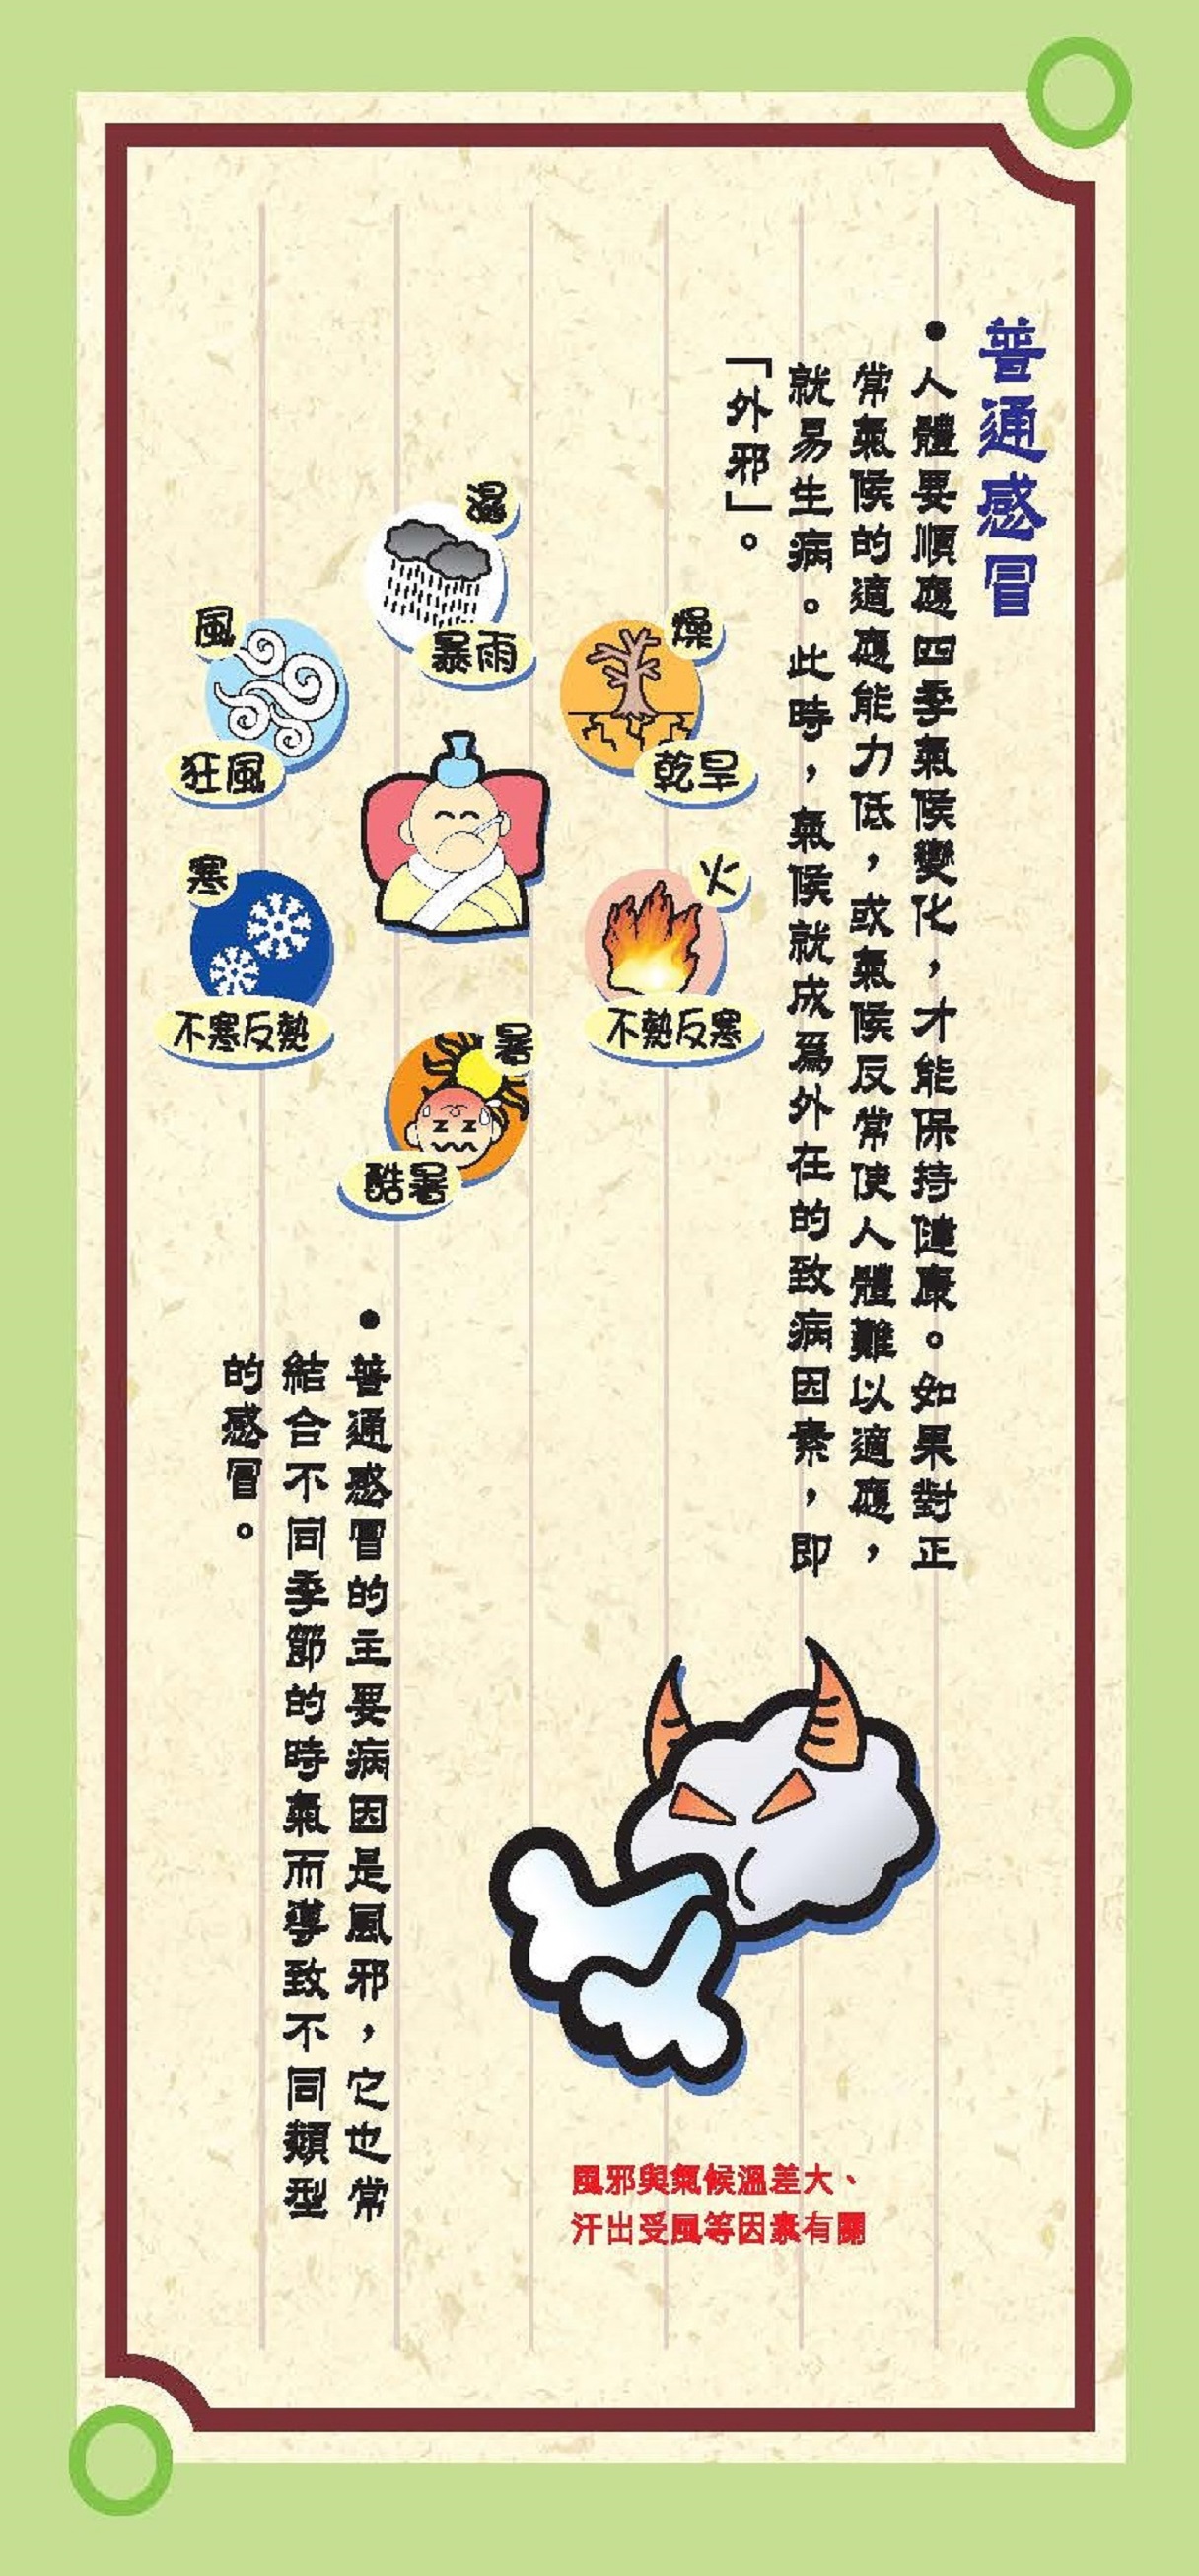 普通感冒
•人體要順應四季氣候變化，才能保持健康。如果對正
常氣候的適應能力低，或氣候反常使人體難以適應，
就易生病。此時，氣候就成爲外在的致病因素，即
「外邪」。
濕
暴雨
燥
乾旱
火
不熱反寒
暑
酷暑
寒
不寒反熱
風
狂風
•普通感冒的主要病因是風邪，它也常
結合不同季節的時氣而導致不同類型
的感冒。
風邪與氣候溫差大、
汗出受風等因素有關